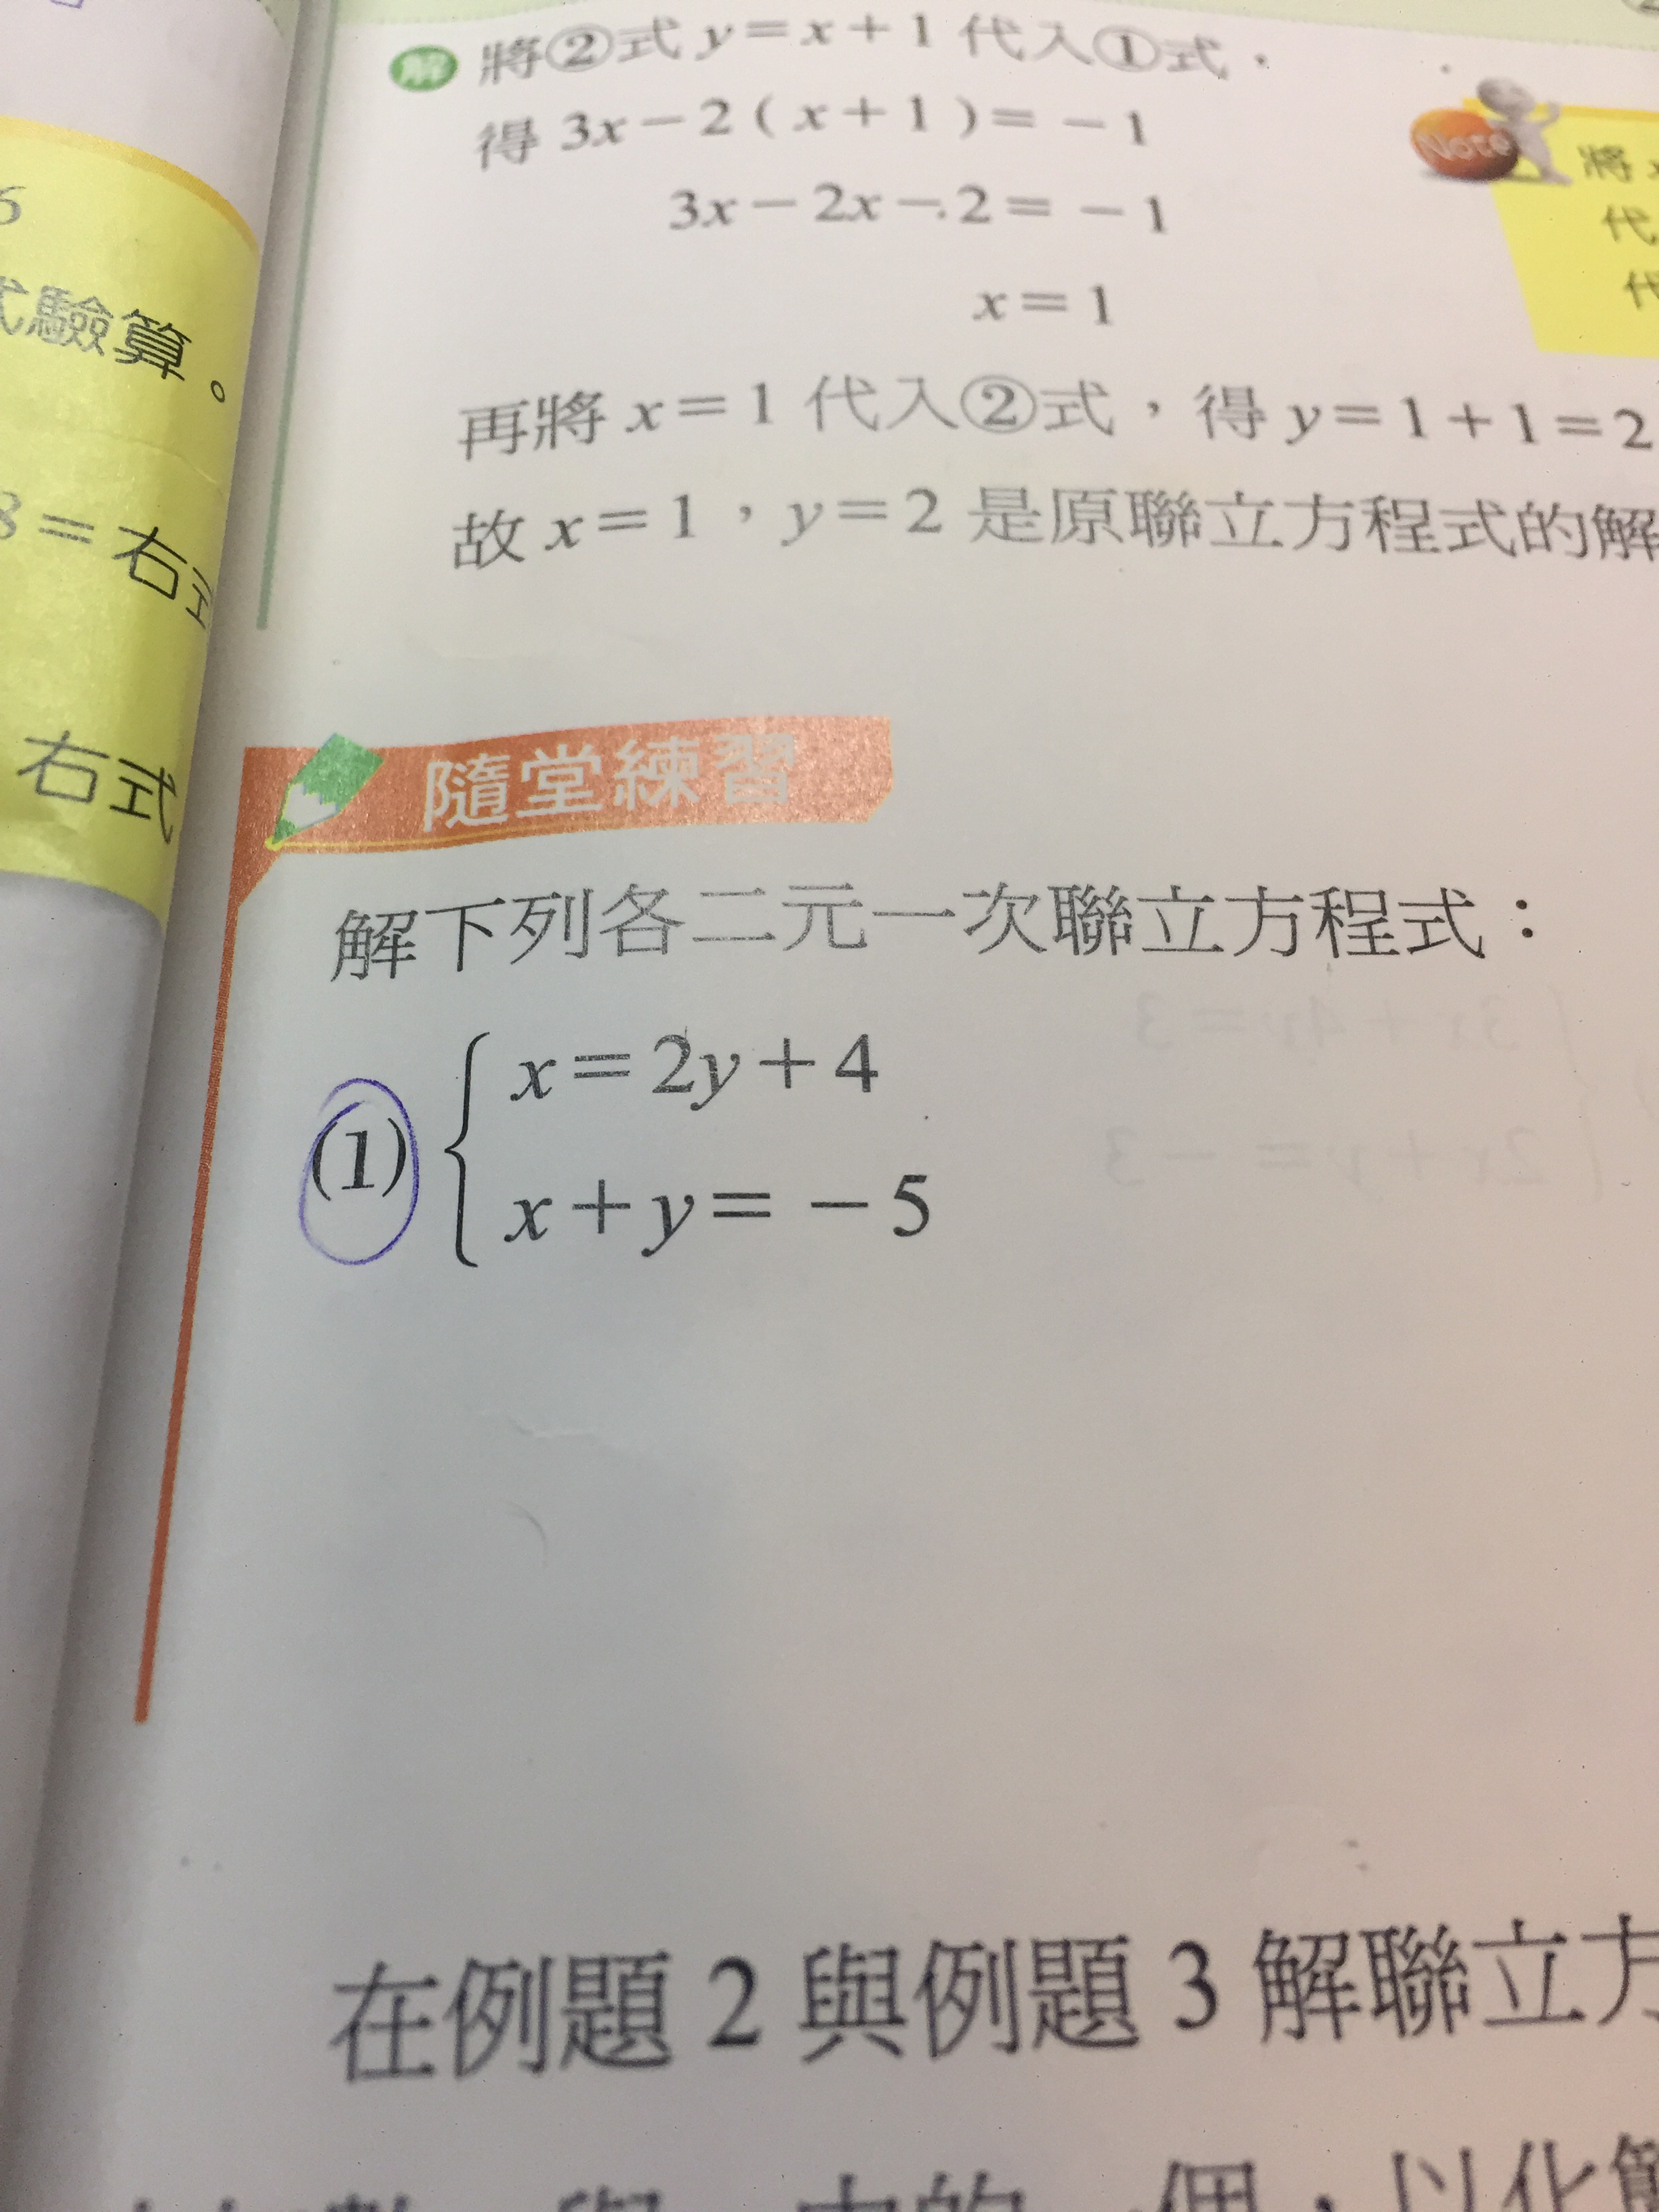 解 將②式 y=x+1 代入①式，
得 3x-2(x+1)=-1
3x-2x-2=-1
x=1
再將 x=1 代入②式，得 y=1+1=2
故 x=1，y=2 是原聯立方程式的解
Note
將
代
代
驗算。
8=右式
右式
隨堂練習
解下列各二元一次聯立方程式：
(1) x=2y+4
x+y=-5
在例題 2 與例題 3 解聯立方